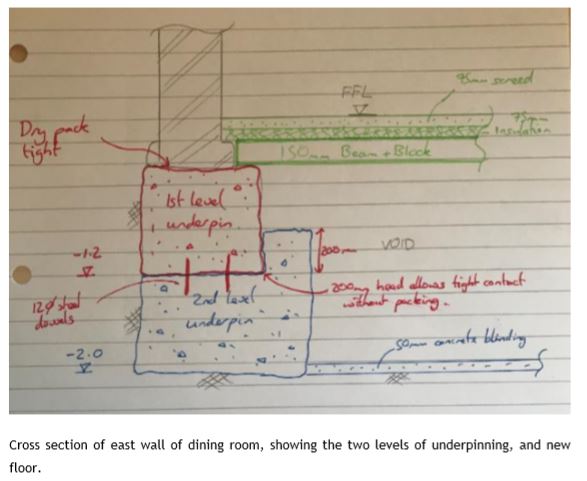 95mm screed
FFL
75mm
Insulation
Dry pack
tight
150mm Beam + Block
1st level
underpin
VOID
-1.2
200mm head allows tight contact
without packing.
12ø steel
dowels
2nd level
underpin
-2.0
50mm concrete blinding
Cross section of east wall of dining room, showing the two levels of underpinning, and new
floor.